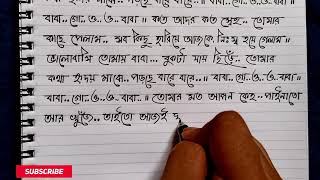 বাবা..গো..ও..ও..বাবা॥ কত আদর কত স্নেহ.. তোমার
কাছে পেলাম.. সব কিছু হারিয়ে আজকে নিঃস্ব হয়ে গেলাম॥
ভালোবাসি তোমায় বাবা.. বুকটা যায় ছিঁড়ে.. তোমার
কথা হৃদয় মাঝে.. পড়ছে বারে বারে..॥ বাবা..গো..ও..ও..বাবা॥
বাবা..গো..ও..ও..বাবা..॥ তোমার মত আপন কেহ.. পাইনাতো
আর খুঁজে.. তাইতো আজই দু
SUBSCRIBE